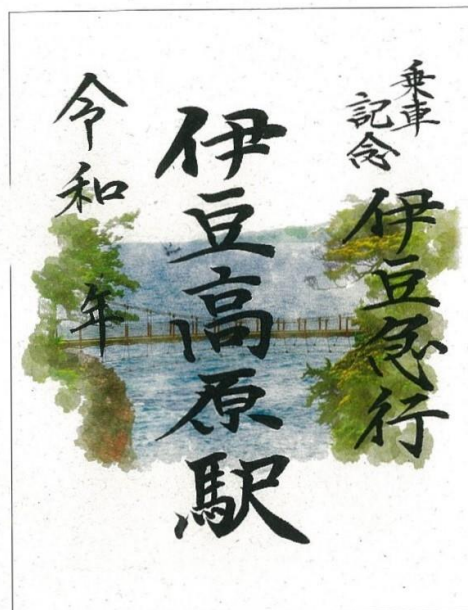 乗車
記念
伊豆急行
伊豆高原駅
令和 年